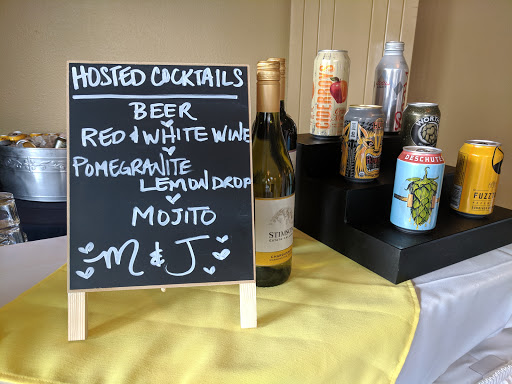 HOSTED COCKTAILS
BEER
RED & WHITE WINE
POMEGRANITE
LEMON DROP
MOJITO
M & J
DESCHUTES